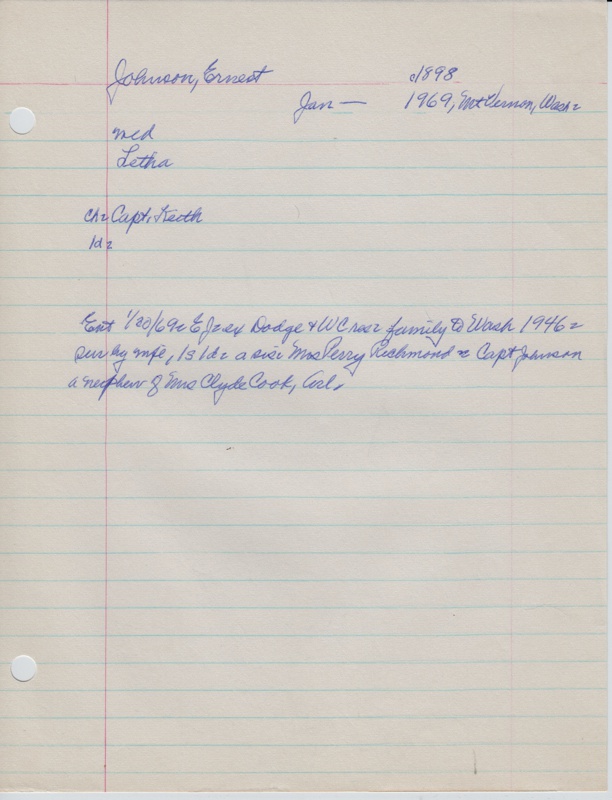 Johnson, Ernest c1898
Jan — 1969, Mt Vernon, Wash=
med
Letha
ch= Capt. Keith
1d=
Ent 1/20/69= EJ=ex Dodge & WC res= family to Wash 1946=
sur by wife, 1s 1d= a sis= Mrs Perry Richmond = Capt Johnson
a nephew of Mrs Clyde Cook, Arl.